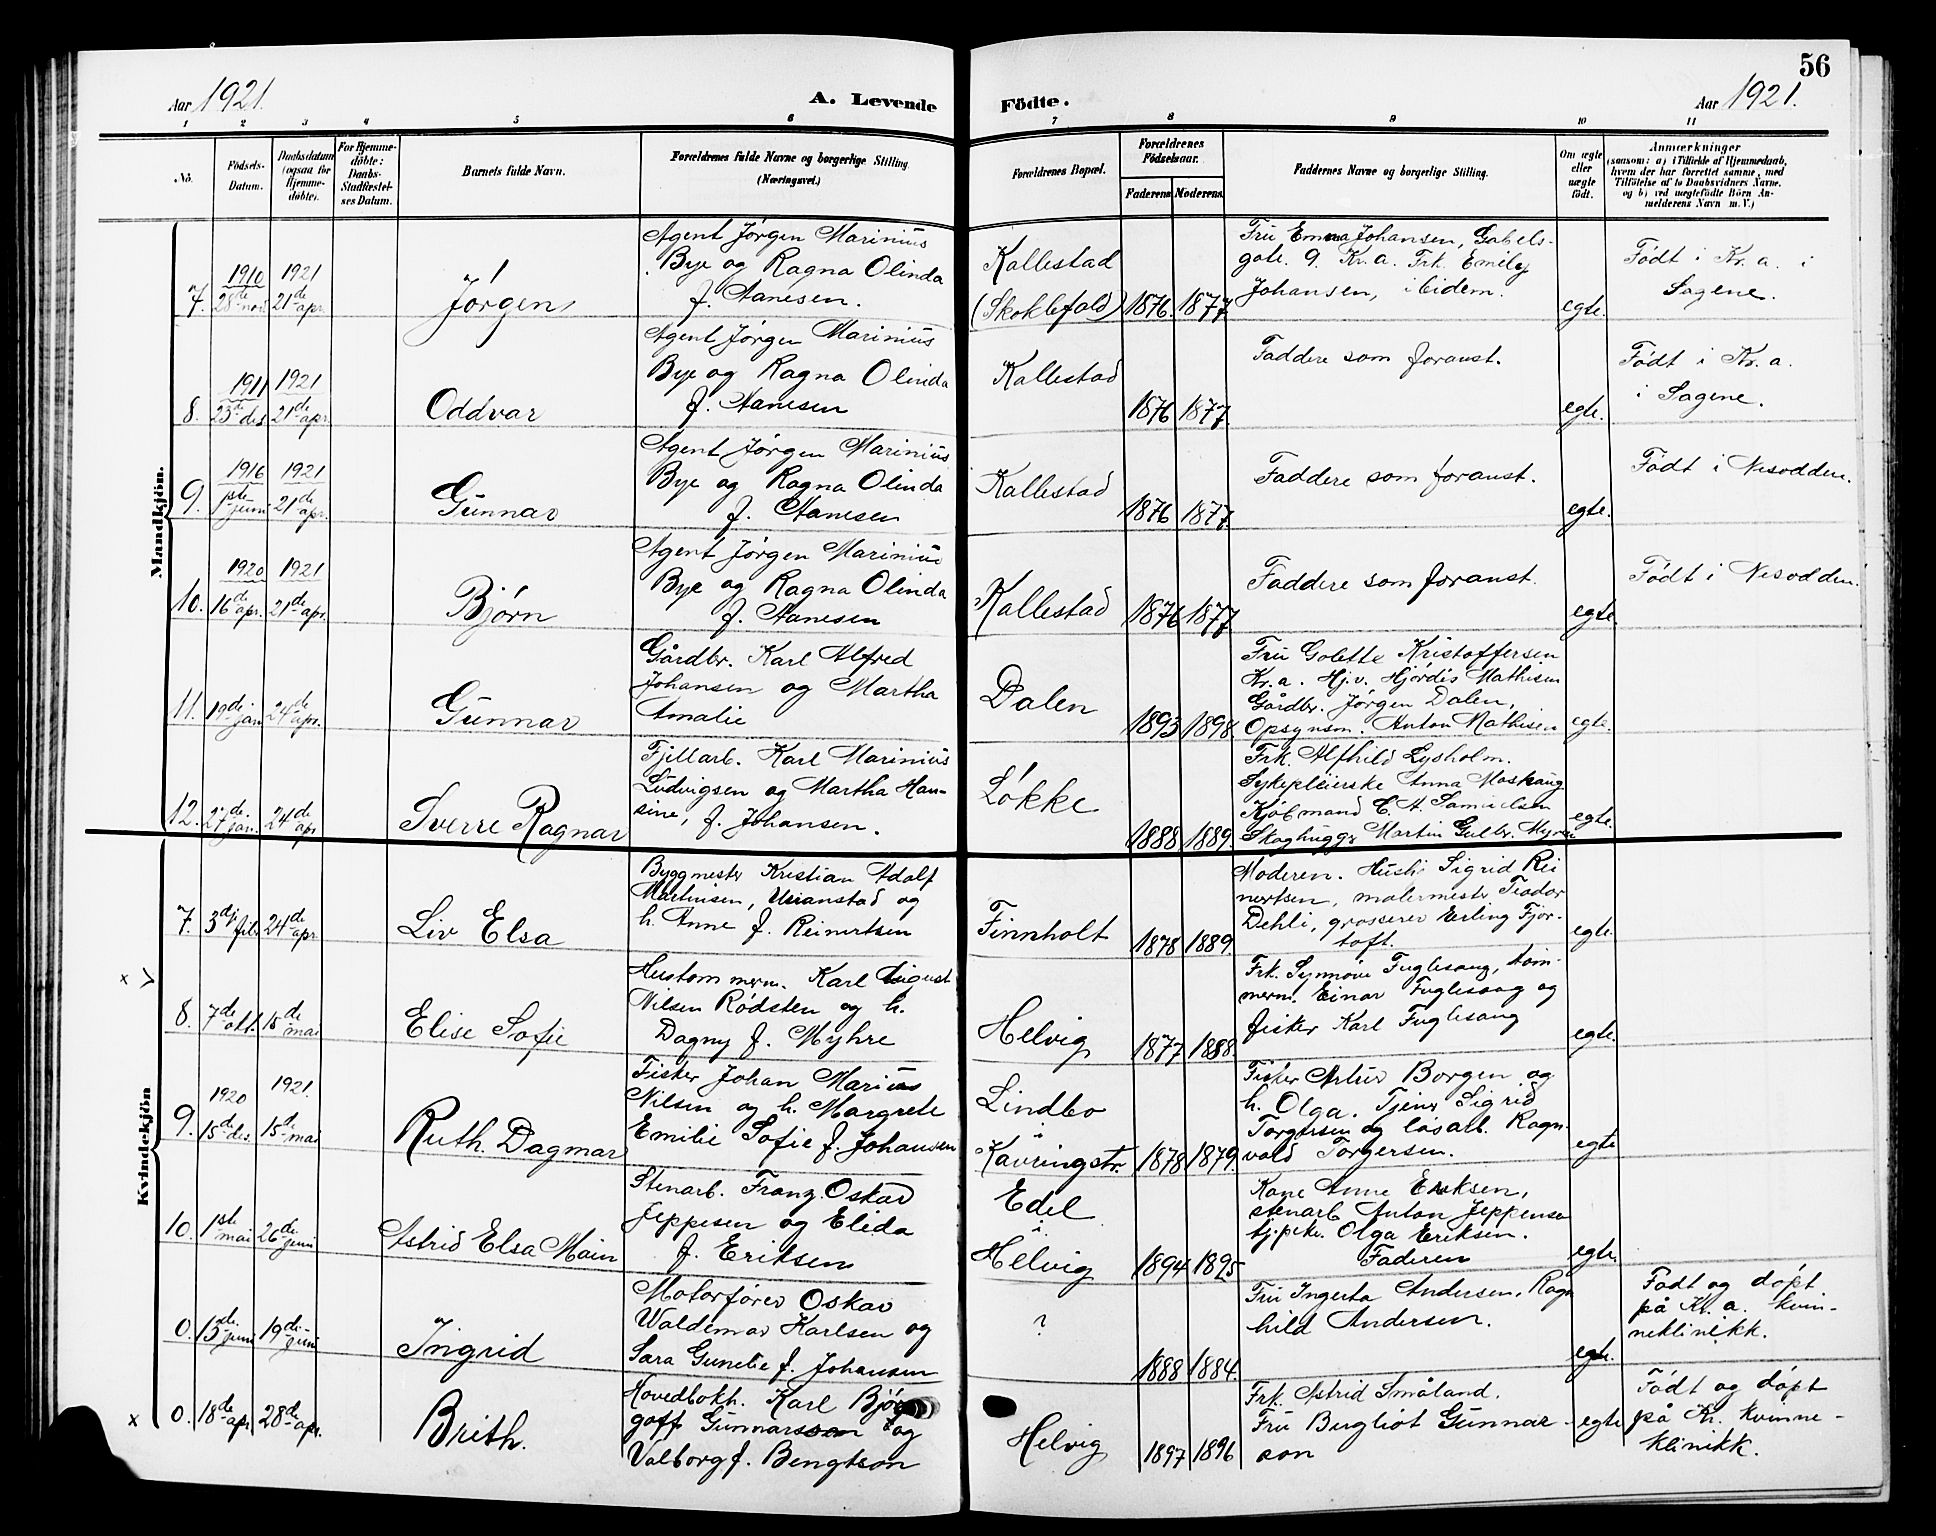 56
Aar 1921.
A. Levende Födte.
Aar 1921.
1 2 3 4 5 6 7 8 9 10 11
No.
Födsels-
Datum.
Daabsdatum
(ogsaa for
Hjemme-
döbte).
For Hjemme-
döbte:
Daabs-
Stadfæstel-
ses Datum.
Barnets fulde Navn.
Forældrenes fulde Navne og borgerlige Stilling
(Næringsvei.)
Forældrenes Bopæl.
Forældrenes
Födselsaar.
Faderens Moderens.
Faddernes Navne og borgerlige Stilling.
Om ægte
eller
uægte
födt.
Anmærkninger
(saasom: a) i Tilfælde af Hjemmedaab,
hvem der har forrettet samme, med
Tilföielse af to Daabsvidners Navne,
og b) ved uægtefödte Börn An-
melderens Navn m. V.)
Mandkjön.
7.
1910
28de nov.
1921
21de apr.
Jørgen
Agent Jørgen Marinius
Bye og Ragna Olinda
f. Aanesen.
Kallestad
(Skoklefald)
1876. 1877
Fru Emma Johansen, Gabels-
gate. 9. Kr.a. Frk. Emily
Johansen, ibidem.
egte.
Født i Kr.a. i
Sagene.
8.
1911
23de des.
1921
21de apr.
Oddvar
Agent Jørgen Marinius
Bye og Ragna Olinda
f. Aanesen
Kallestad
1876 1877.
Faddere som foranst.
egte.
Født i Kr.a.
i Sagene.
9.
1916
1ste juni
1921
21de apr.
Gunnar
Agent Jørgen Marinius
Bye og Ragna Olinda
f. Aanesen
Kallestad
1876 1877.
Faddere som foranst.
egte.
Født i Nesodden.
10.
1920
16de apr.
1921
21de apr.
Bjørn
Agent Jørgen Marinius
Bye og Ragna Olinda
f. Aanesen
Kallestad
1876 1877
Faddere som foranst.
egte.
Født i Nesodden.
11. 19de jan. 24de apr.
Gunnar
Gårdbr. Karl Alfred
Johansen og Martha
Amalie
Dalen
1893 1898.
Fru Golette Kristoffersen
Kr.a. Hj.v. Hjördis Mathisen
Gårdbr. Jørgen Dalen,
Opsynsm. Anton Mathisen
egte.
12. 27de jan. 24de apr.
Sverre Ragnar
Fjellarb. Karl Marinius
Ludvigsen og Martha Han-
sine, f. Johansen.
Løkke
1888 1889.
Frk. Alfhild Lysholm.
Sykepleierske Anna Moskaug
Kjøbmand C. A. Samuelsen
Skoghugger Martin Gulbr. Myren
egte.
Kvindekjön
7. 3dj feb. 24de apr
Liv Elsa
Byggmester Kristian Adolf
Martinsen, Uranstad og
h. Anne f. Reinertsen
Finnholt
1878 1889.
Moderen. Hustr. Sigrid Rei
nertsen, malermestr Teodor
Dehli, grosserer Erling Fjör-
toft.
egte.
x V
8. 7de okt. 15de mai
Elise Sofie
Hustømmerm. Karl August
Nilsen Rødsten og h.
Dagny f. Myhre
Helvig
1877 1888.
Frk. Synnöve Fuglesang, tøm-
merm. Einar Fuglesang og
fisker Karl Fuglesang
egte.
9.
1920
15de des.
1921.
15de mai
Ruth Dagmar
Fisker Johan Marius
Nilsen og h. Margrete
Emilie Sofie f. Johansen
Lindbo
i
Kavringstr.
1878 1879.
Fisker Artur Borgen og
h. Olga. Tjener Sigrid
Torgersen og løsarb. Ragn-
vald Torgersen.
egte
10. 1ste mai 26de juni
Astrid Elsa Main
Stenarb. Franz Oskar
Jeppesen og Elida
f. Eriksen
Edel
i.
Helvig
1894 1895
Kone Anne Eriksen,
stenarb Anton Jeppensen
tj.pike. Olga Eriksen.
Faderen
egte.
0. 13de juni 19de juni
Ingrid
Motorfører Oskar
Waldemar Karlsen og
Sara Gunelie f. Johansen
?
1888 1884.
Fru Ingerta Andersen, Ragn
hild Andersen.
egte.
Født og døpt
på Kr.a. kvin-
neklinikk.
x
0. 18de apr 28de apr.
Brith.
Hovedbokh. Karl
Gunnarsson og
Valborg f. Bengtson
Helvig
1897 1896
Frk. Astrid Småland.
Fru Bergliot Gunnar-
son
egte
Født og døpt
på Kr. kvinne-
klinikk.